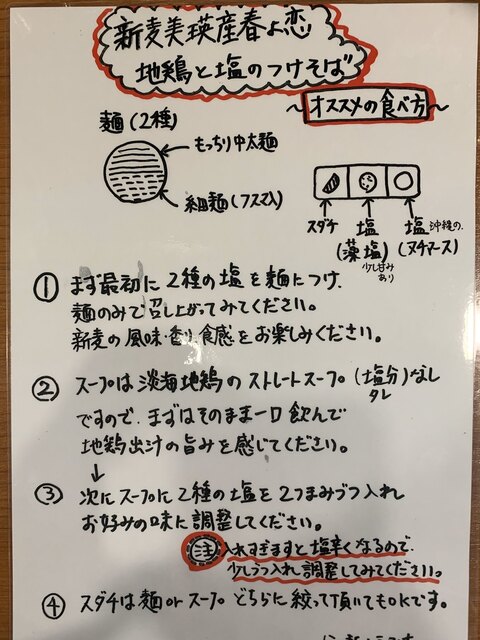 新麦美瑛産春よ恋
地鶏と塩のつけそば
～オススメの食べ方～
麺(2種)
もっちり中太麺
細麺(フスマ入)
スダチ
塩
(藻塩)
少し甘み
あり
塩
沖縄の
(ヌチマース)
① まず最初に2種の塩を麺につけ、
麺のみで召し上がってみてください。
新麦の風味・香り・食感をお楽しみください。
② スープは淡海地鶏のストレートスープ(塩分)なし
タレ
ですので、まずはそのまま一口飲んで
地鶏出汁の旨みを感じてください。
↓
③ 次にスープに2種の塩を2つまみづつ入れ
お好みの味に調整してください。
注 入れすぎますと塩辛くなるので、
少しづつ入れ調整してみてください。
④ スダチは麺orスープどちらに絞って頂いてもOKです。